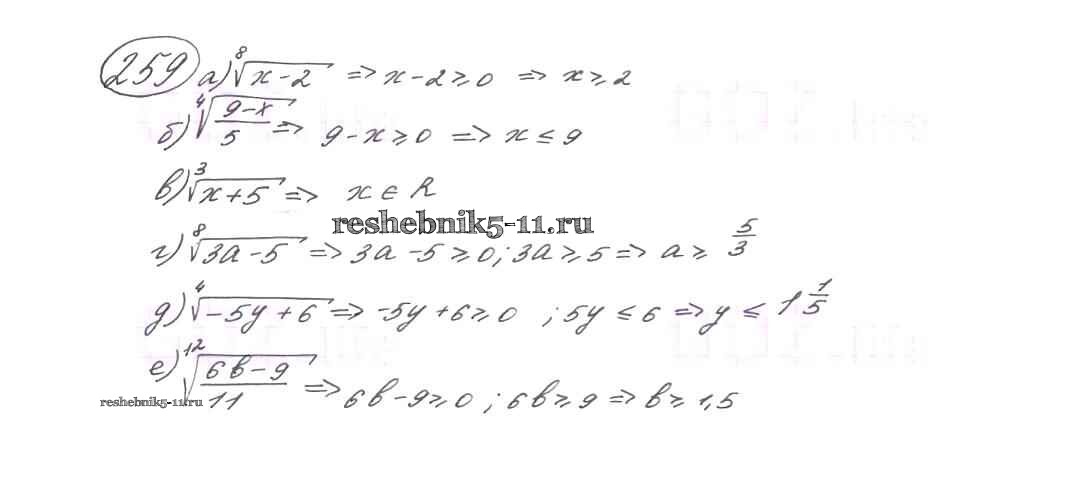 259 а) ⁸√(x-2) => x-2≥0 => x≥2
б) ⁴√((9-x)/5) => 9-x≥0 => x≤9
в) ³√(x+5) => x∈R
reshebnik5-11.ru
г) ⁸√(3a-5) => 3a-5≥0; 3a≥5 => a≥ 5/3
д) ⁴√(-5y+6) => -5y+6≥0 ; 5y≤6 => y≤ 1 1/5
е) ¹²√((6b-9)/11) => 6b-9≥0 ; 6b≥9 => b≥1,5
reshebnik5-11.ru